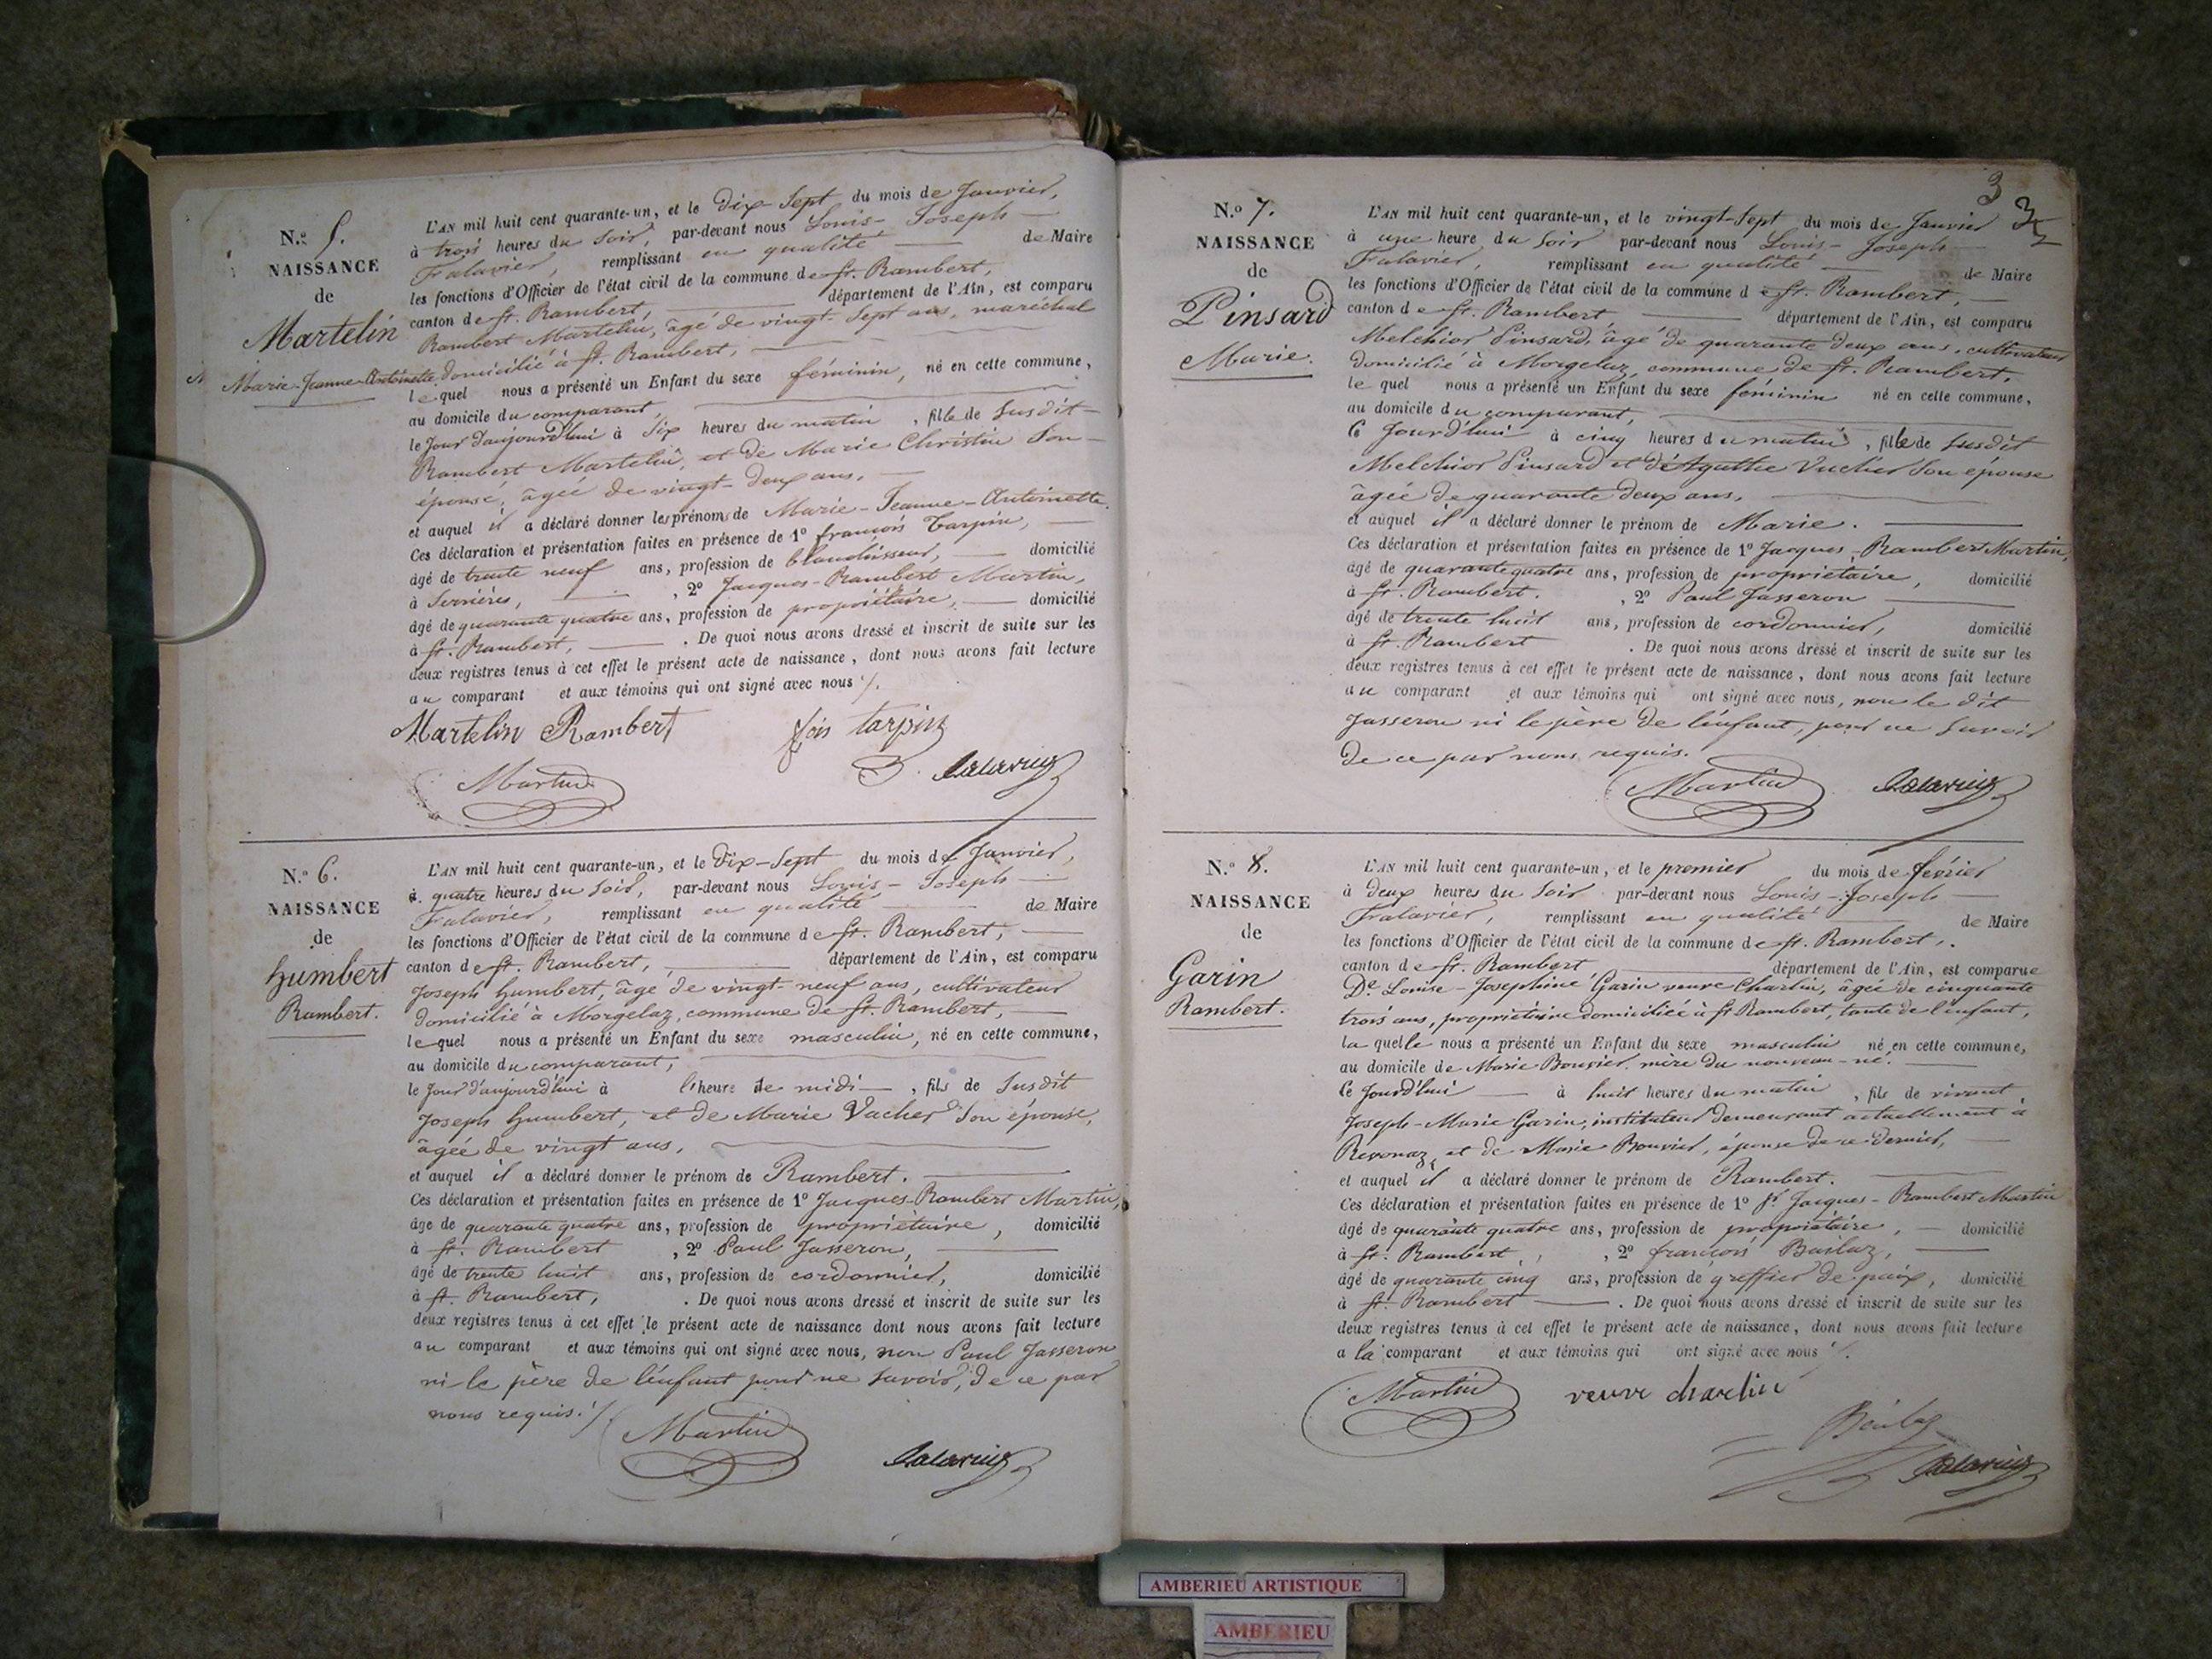 N.o 5.
NAISSANCE
de
Martelin
Marie-Jeanne-Antoinette
L'AN mil huit cent quarante-un, et le Dix Sept du mois de Janvier,
à trois heures du Soir, par-devant nous Louis-Joseph
remplissant en qualité de Maire
les fonctions d'Officier de l'état civil de la commune de St. Rambert,
canton de St. Rambert, département de l'Ain, est comparu
Rambert Martelin, âgé de vingt-Sept ans, maréchal
domicilié à St. Rambert,
lequel nous a présenté un Enfant du sexe féminin, né en cette commune,
au domicile du comparant,
le Jour d'aujourd'hui à Six heures du matin, fille de Susdit
Rambert Martelin, et de Marie Christin Son
épouse, âgée de vingt-deux ans.
et auquel il a déclaré donner les prénoms de Marie-Jeanne-Antoinette.
Ces déclaration et présentation faites en présence de 1o françois Tarpin,
âgé de trente neuf ans, profession de blanchisseur, domicilié
à Serrières, , 2o Jacques-Rambert Martin,
âgé de quarante quatre ans, profession de propriétaire, domicilié
à St. Rambert, . De quoi nous avons dressé et inscrit de suite sur les
deux registres tenus à cet effet le présent acte de naissance, dont nous avons fait lecture
au comparant et aux témoins qui ont signé avec nous ./.
Martelin Rambert fois tarpin
Martin
N.o 6.
NAISSANCE
de
humbert
Rambert.
L'AN mil huit cent quarante-un, et le Dix-Sept du mois de Janvier,
à quatre heures du Soir, par-devant nous Louis-Joseph
remplissant en qualité de Maire
les fonctions d'Officier de l'état civil de la commune de St. Rambert,
canton de St. Rambert, département de l'Ain, est comparu
Joseph humbert, âgé de vingt-neuf ans, cultivateur
domicilié à Morgelaz, commune de St. Rambert,
lequel nous a présenté un Enfant du sexe masculin, né en cette commune,
au domicile du comparant,
le Jour d'aujourd'hui à l'heure de midi, fils de Susdit
Joseph humbert, et de Marie Vacher Son épouse,
âgée de vingt ans,
et auquel il a déclaré donner le prénom de Rambert.
Ces déclaration et présentation faites en présence de 1o Jacques-Rambert Martin,
âgé de quarante quatre ans, profession de propriétaire, domicilié
à St. Rambert , 2o Paul Jasseron,
âgé de trente huit ans, profession de cordonnier, domicilié
à St. Rambert, . De quoi nous avons dressé et inscrit de suite sur les
deux registres tenus à cet effet le présent acte de naissance dont nous avons fait lecture
au comparant et aux témoins qui ont signé avec nous, non Paul Jasseron
ni le père de l'enfant pour ne Savoir, de ce par
nous requis ./.
Martin
3
N.o 7.
NAISSANCE
de
Pinsard
Marie.
L'AN mil huit cent quarante-un, et le vingt-Sept du mois de Janvier
à une heure du Soir par-devant nous Louis-Joseph
remplissant en qualité de Maire
les fonctions d'Officier de l'état civil de la commune de St. Rambert,
canton de St. Rambert, département de l'Ain, est comparu
Melchior Pinsard, âgé de quarante deux ans, cultivateur
domicilié à Morgelaz, commune de St. Rambert,
lequel nous a présenté un Enfant du sexe féminin né en cette commune,
au domicile du comparant,
Ce Jourd'hui à cinq heures du matin, fille de Susdit
Melchior Pinsard et d'Agathe Vucher Son épouse
âgée de quarante deux ans,
et auquel il a déclaré donner le prénom de Marie.
Ces déclaration et présentation faites en présence de 1o Jacques-Rambert Martin,
âgé de quarante quatre ans, profession de propriétaire, domicilié
à St. Rambert. , 2o Paul Jasseron
âgé de trente huit ans, profession de cordonnier, domicilié
à St. Rambert . De quoi nous avons dressé et inscrit de suite sur les
deux registres tenus à cet effet le présent acte de naissance, dont nous avons fait lecture
au comparant et aux témoins qui ont signé avec nous, non le dit
Jasseron ni le père de l'enfant, pour ne Savoir
de ce par nous requis.
Martin
N.o 8.
NAISSANCE
de
Garin
Rambert.
L'AN mil huit cent quarante-un, et le premier du mois de février
à deux heures du Soir par-devant nous Louis-Joseph
remplissant en qualité de Maire
les fonctions d'Officier de l'état civil de la commune de St. Rambert,
canton de St. Rambert département de l'Ain, est comparue
De Louise-Josephine Garin veuve Charlin, âgée de cinquante
trois ans, propriétaire domiciliée à St Rambert, tante de l'enfant,
la quelle nous a présenté un Enfant du sexe masculin né en cette commune,
au domicile de Marie Bouvier mère du nouveau-né.
Ce Jourd'hui à huit heures du matin, fils de vivant
Joseph-Marie Garin, instituteur demeurant actuellement à
Revonaz, et de Marie Bouvier, épouse de ce dernier,
et auquel il a déclaré donner le prénom de Rambert.
Ces déclaration et présentation faites en présence de 1o Sr Jacques-Rambert Martin
âgé de quarante quatre ans, profession de propriétaire, domicilié
à St. Rambert, , 2o françois
âgé de quarante cinq ans, profession de greffier de paix, domicilié
à St. Rambert . De quoi nous avons dressé et inscrit de suite sur les
deux registres tenus à cet effet le présent acte de naissance, dont nous avons fait lecture
a la comparant et aux témoins qui ont signé avec nous ./.
Martin veuve charlin
AMBERIEU ARTISTIQUE
AMBERIEU